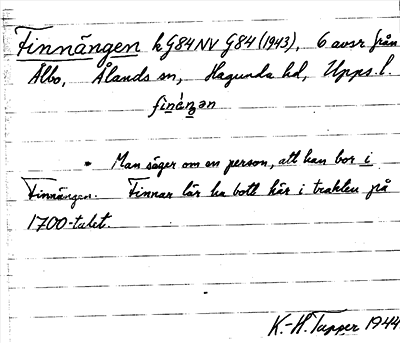 Finnängen k G84 NV G84 (1943), 6 avsr från
Ålbo, Ålands sn, Hagunda hd, Upps. l.
finäŋən
Man säger om en person, att han bor i
Finnängen. Finnar lär ha bott här i trakten på
1700-talet.
K.-H. Tapper 1944